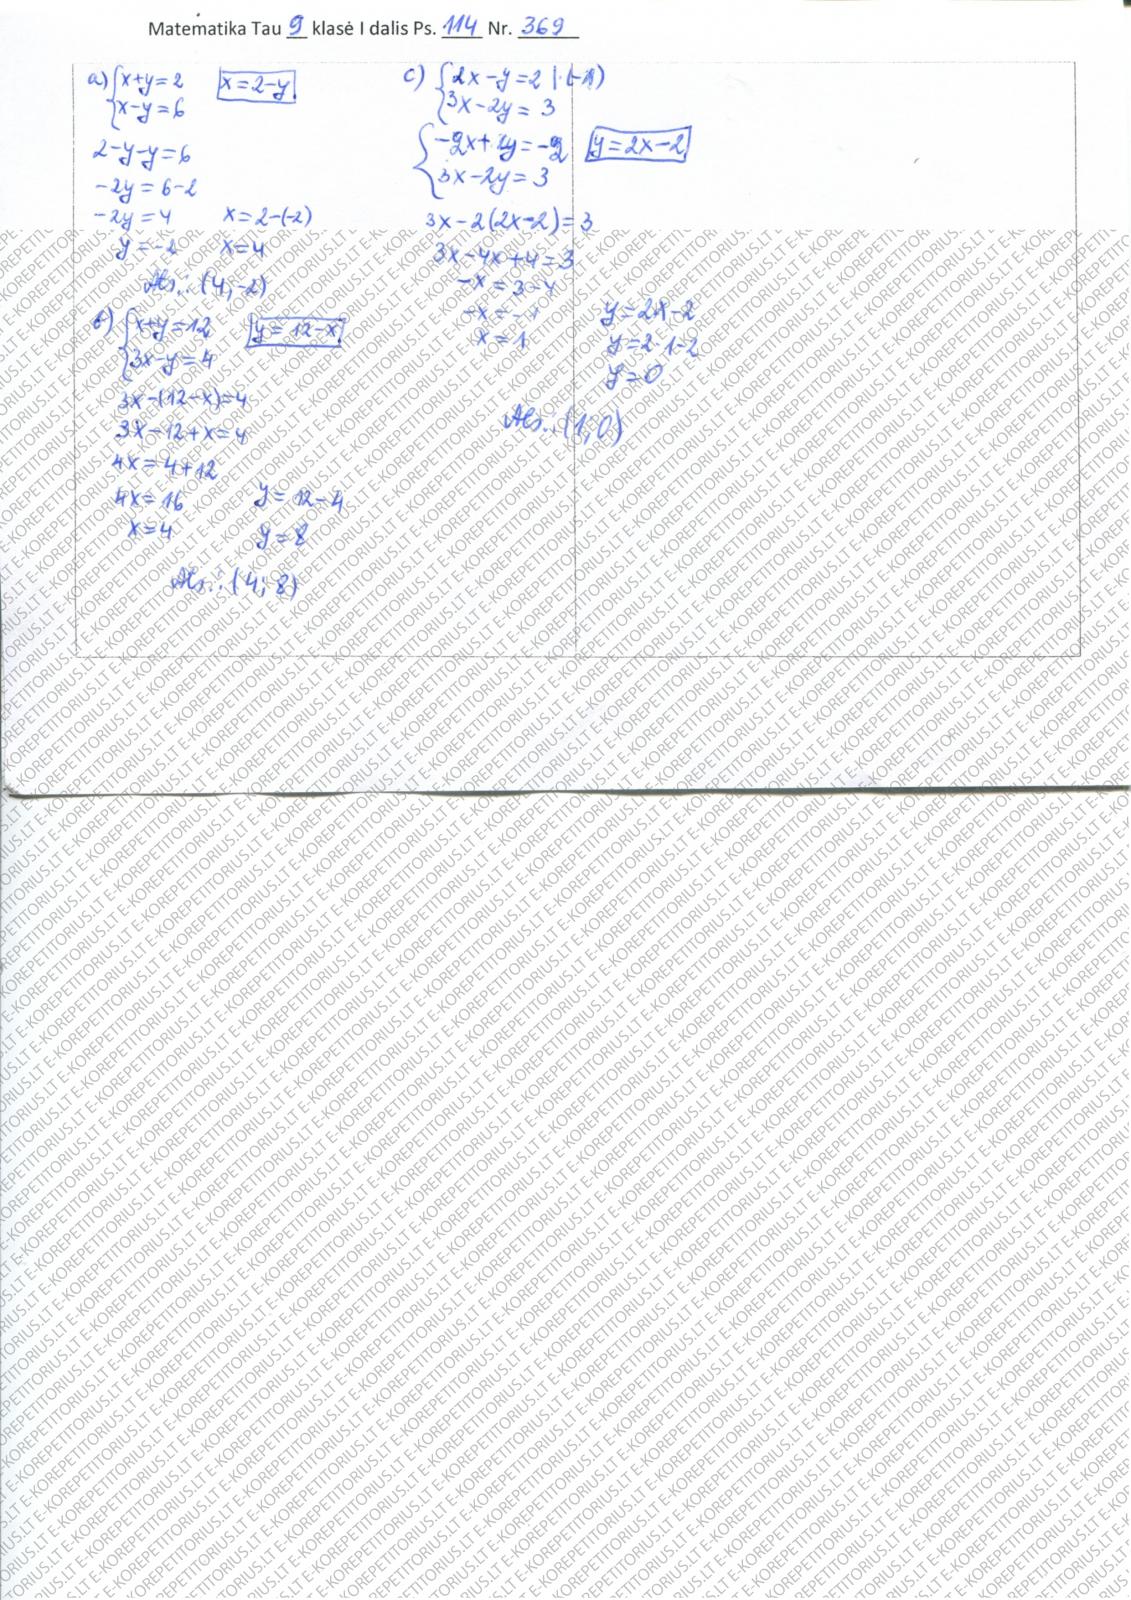 Matematika Tau 9 klasė I dalis Ps. 114 Nr. 369
a) {x+y=2 x=2-y
x-y=6
2-y-y=6
-2y=6-2
-2y=4 x=2-(-2)
y=-2 x=4
Ats.: (4;-2)
b) {x+y=12 y=12-x
3x-y=4
3x-(12-x)=4
3x-12+x=4
4x=4+12
4x=16 y=12-4
x=4 y=8
Ats.: (4; 8)
c) {2x-y=2 |·(-1)
3x-2y=3
{-2x+y=-2 y=2x-2
3x-2y=3
3x-2(2x-2)=3
3x-4x+4=3
-x=3-4
-x=-1 y=2x-2
x=1 y=2·1-2
y=0
Ats.: (1;0)
E-KOREPETITORIUS.LT